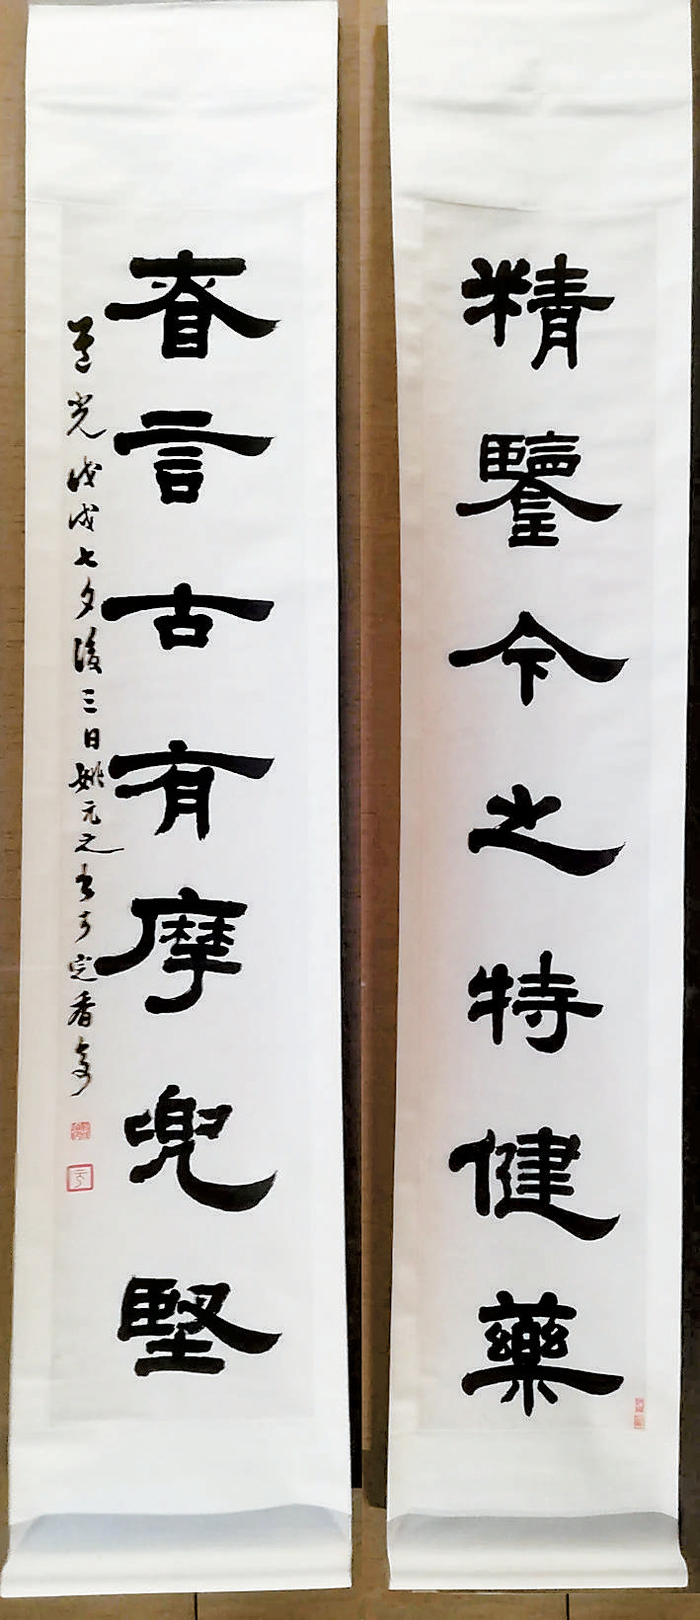 精鑒今之特健藥
眘言古有摩兜堅
道光戊戌七夕後三日姚元之書于定香亭